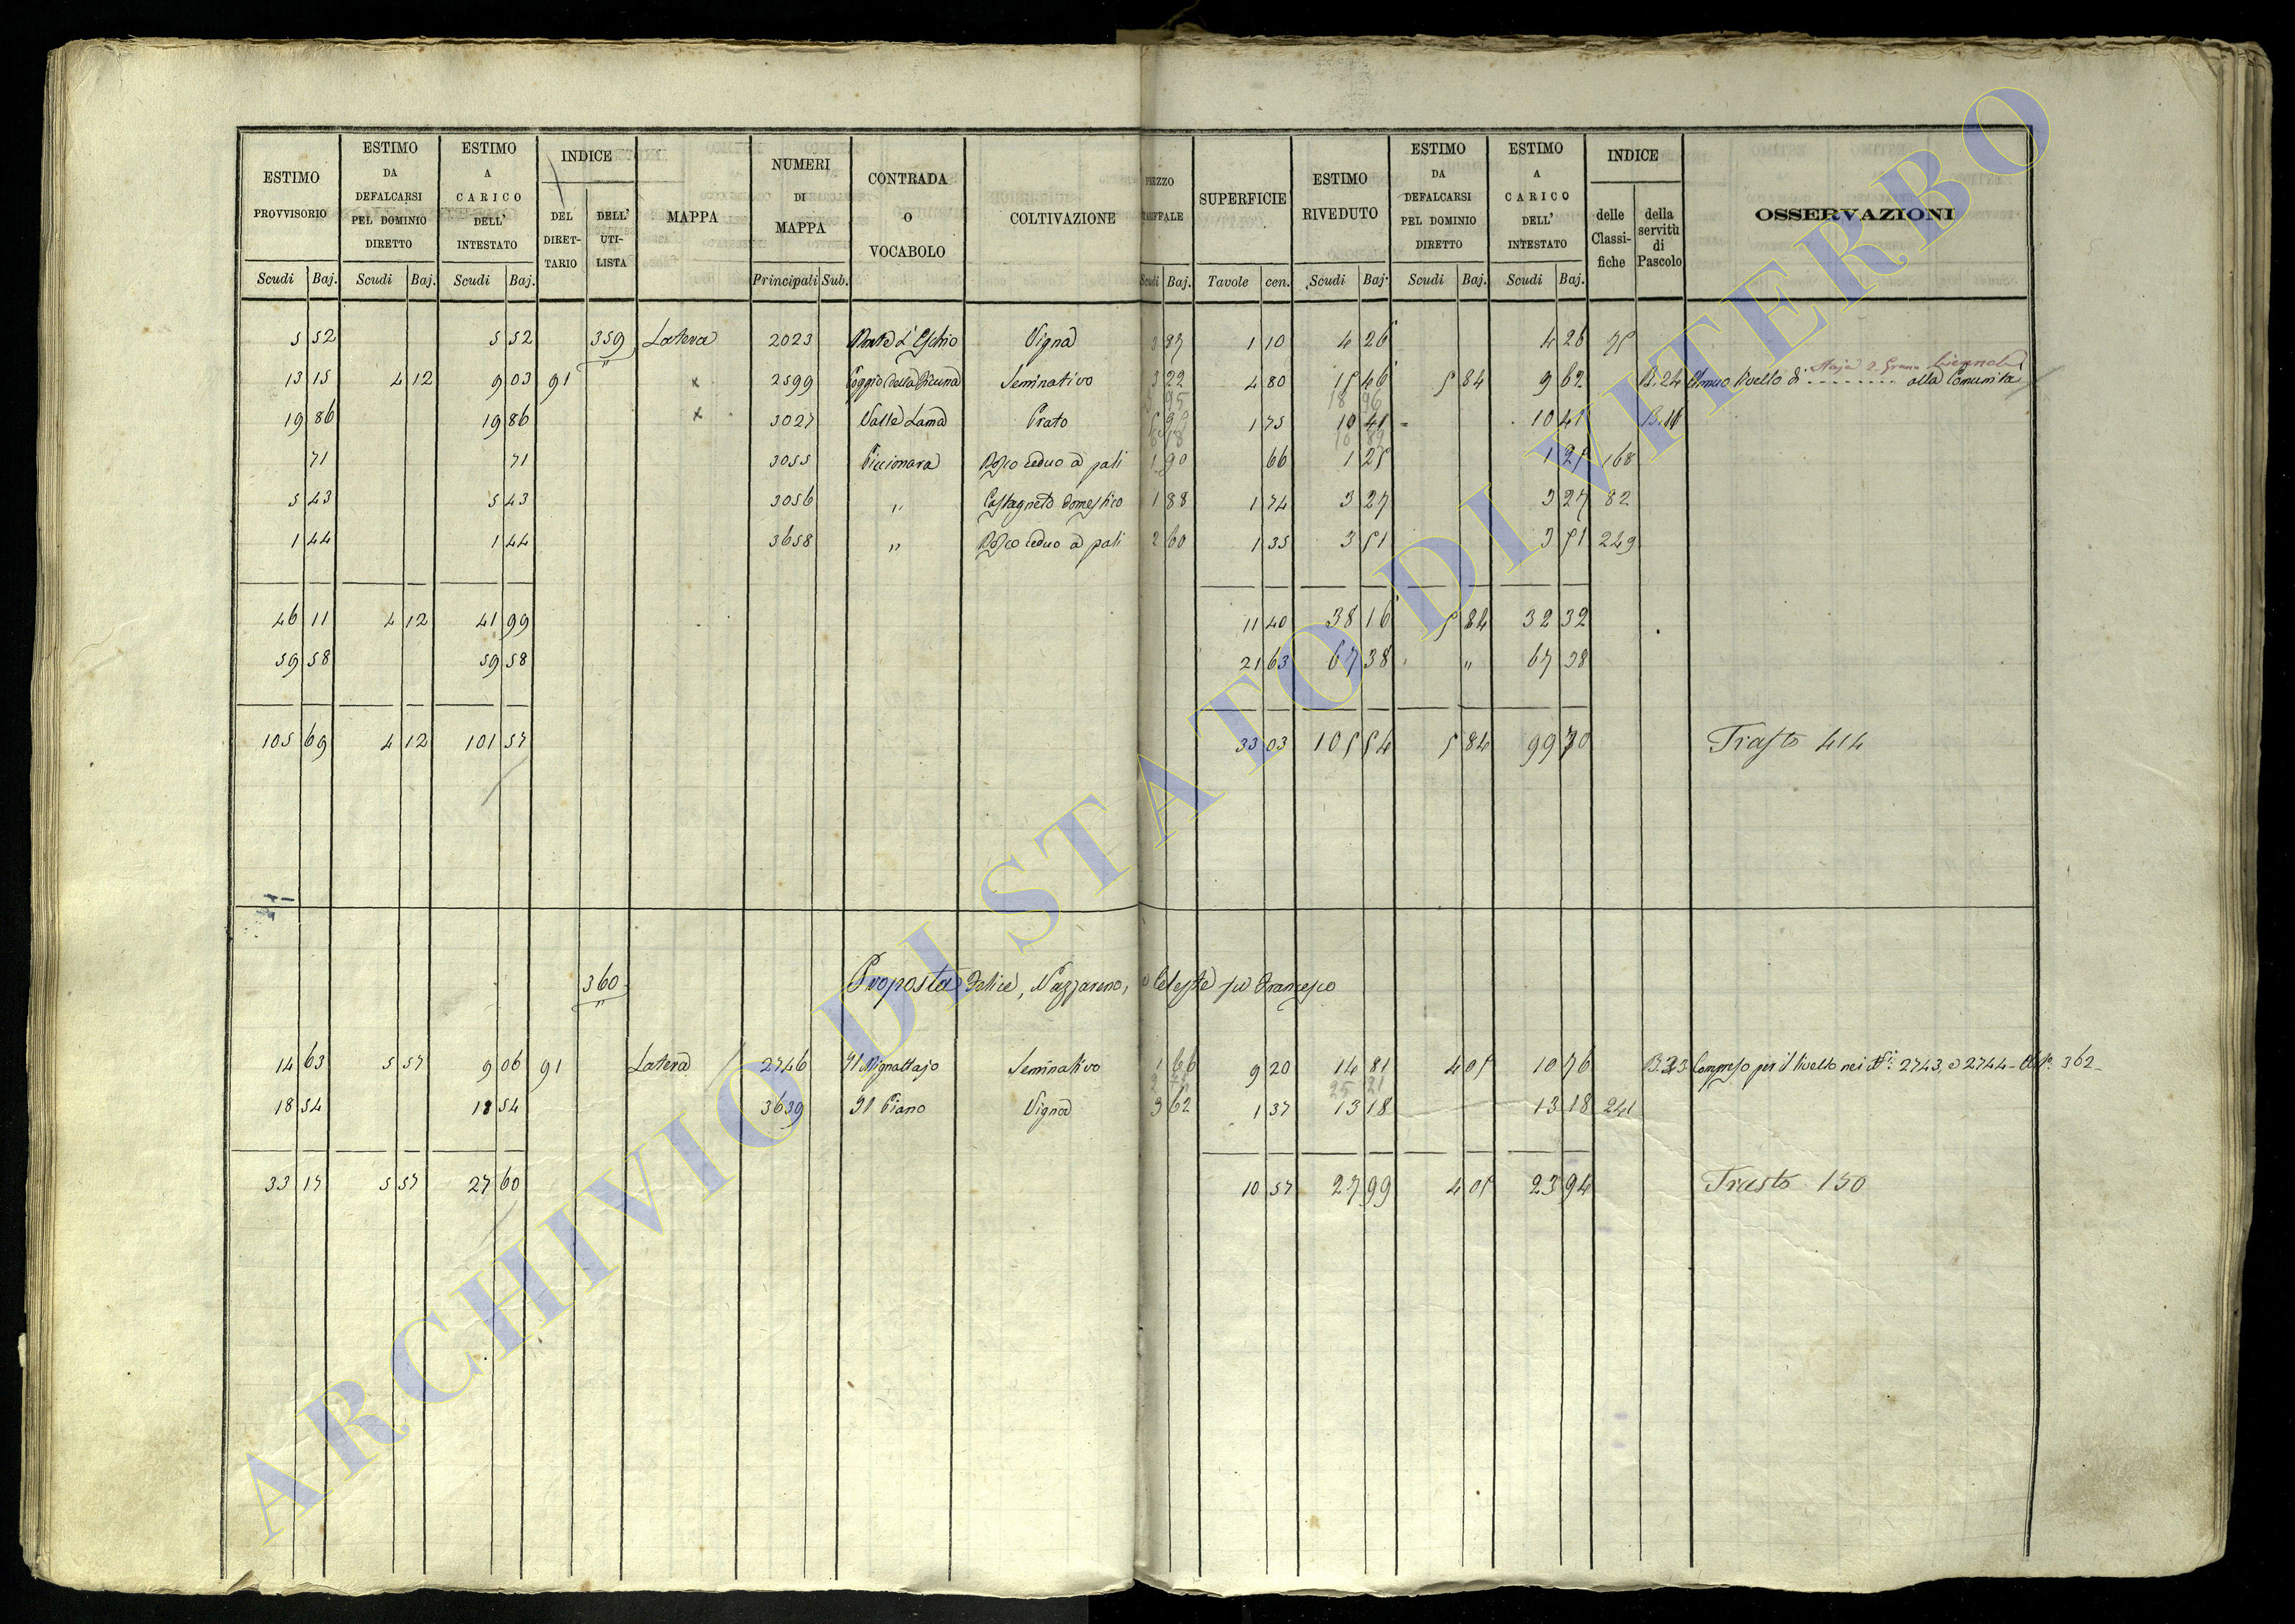 ESTIMO PROVVISORIO | ESTIMO DA DEFALCARSI PEL DOMINIO DIRETTO | ESTIMO A CARICO DELL' INTESTATO | INDICE | MAPPA | NUMERI DI MAPPA | CONTRADA O VOCABOLO | COLTIVAZIONE | SUPERFICIE | ESTIMO RIVEDUTO | ESTIMO DA DEFALCARSI PEL DOMINIO DIRETTO | ESTIMO A CARICO DELL' INTESTATO | INDICE | OSSERVAZIONI
DEL DIRETTARIO | DELL' UTILISTA | delle Classifiche | della servitù di Pascolo
Scudi | Baj. | Scudi | Baj. | Scudi | Baj. | Principali | Sub. | Scudi | Baj. | Tavole | cen. | Scudi | Baj. | Scudi | Baj. | Scudi | Baj.
5 52 | 5 52 | 359 | Latera | 2023 | Vigna | 3 87 | 1 10 | 4 26 | 4 26 | 75
13 15 | 4 12 | 9 03 | 91 | x | 2599 | Seminativo | 3 22 | 4 80 | 15 46 | 5 84 | 9 62 | B. 24 | Annuo livello di ........ alla Comunità
19 86 | 19 86 | x | 3027 | Valle Lama | Prato | 1 75 | 10 41 | 10 41 | B. 16
18 96
71 | 71 | 3055 | Piccionara | Bosco ceduo a pali | 1 90 | 66 | 1 25 | 1 25 | 168
5 43 | 5 43 | 3056 | " | Castagneto domestico | 1 88 | 1 74 | 3 27 | 3 27 | 82
1 44 | 1 44 | 3658 | " | Bosco ceduo a pali | 2 60 | 1 35 | 3 51 | 3 51 | 249
46 11 | 4 12 | 41 99 | 11 40 | 38 16 | 5 84 | 32 32
59 58 | 59 58 | 21 63 | 67 38 | " | 67 38
105 69 | 4 12 | 101 57 | 33 03 | 105 54 | 5 84 | 99 70 | Trasto 414
360 | Proposta Felice, Nazzareno, e Celeste fu Francesco
14 63 | 5 57 | 9 06 | 91 | Latera | 2746 | Il Pignattajo | Seminativo | 1 66 | 9 20 | 14 81 | 4 05 | 10 76 | Compreso per il livello nei Ni. 2743, e 2744 - 362
25 21
18 54 | 18 54 | 3639 | Il Piano | Vigna | 9 62 | 1 37 | 13 18 | 13 18 | 241
33 17 | 5 57 | 27 60 | 10 57 | 27 99 | 4 05 | 23 94 | Trasto 150
ARCHIVIO DI STATO DI VITERBO